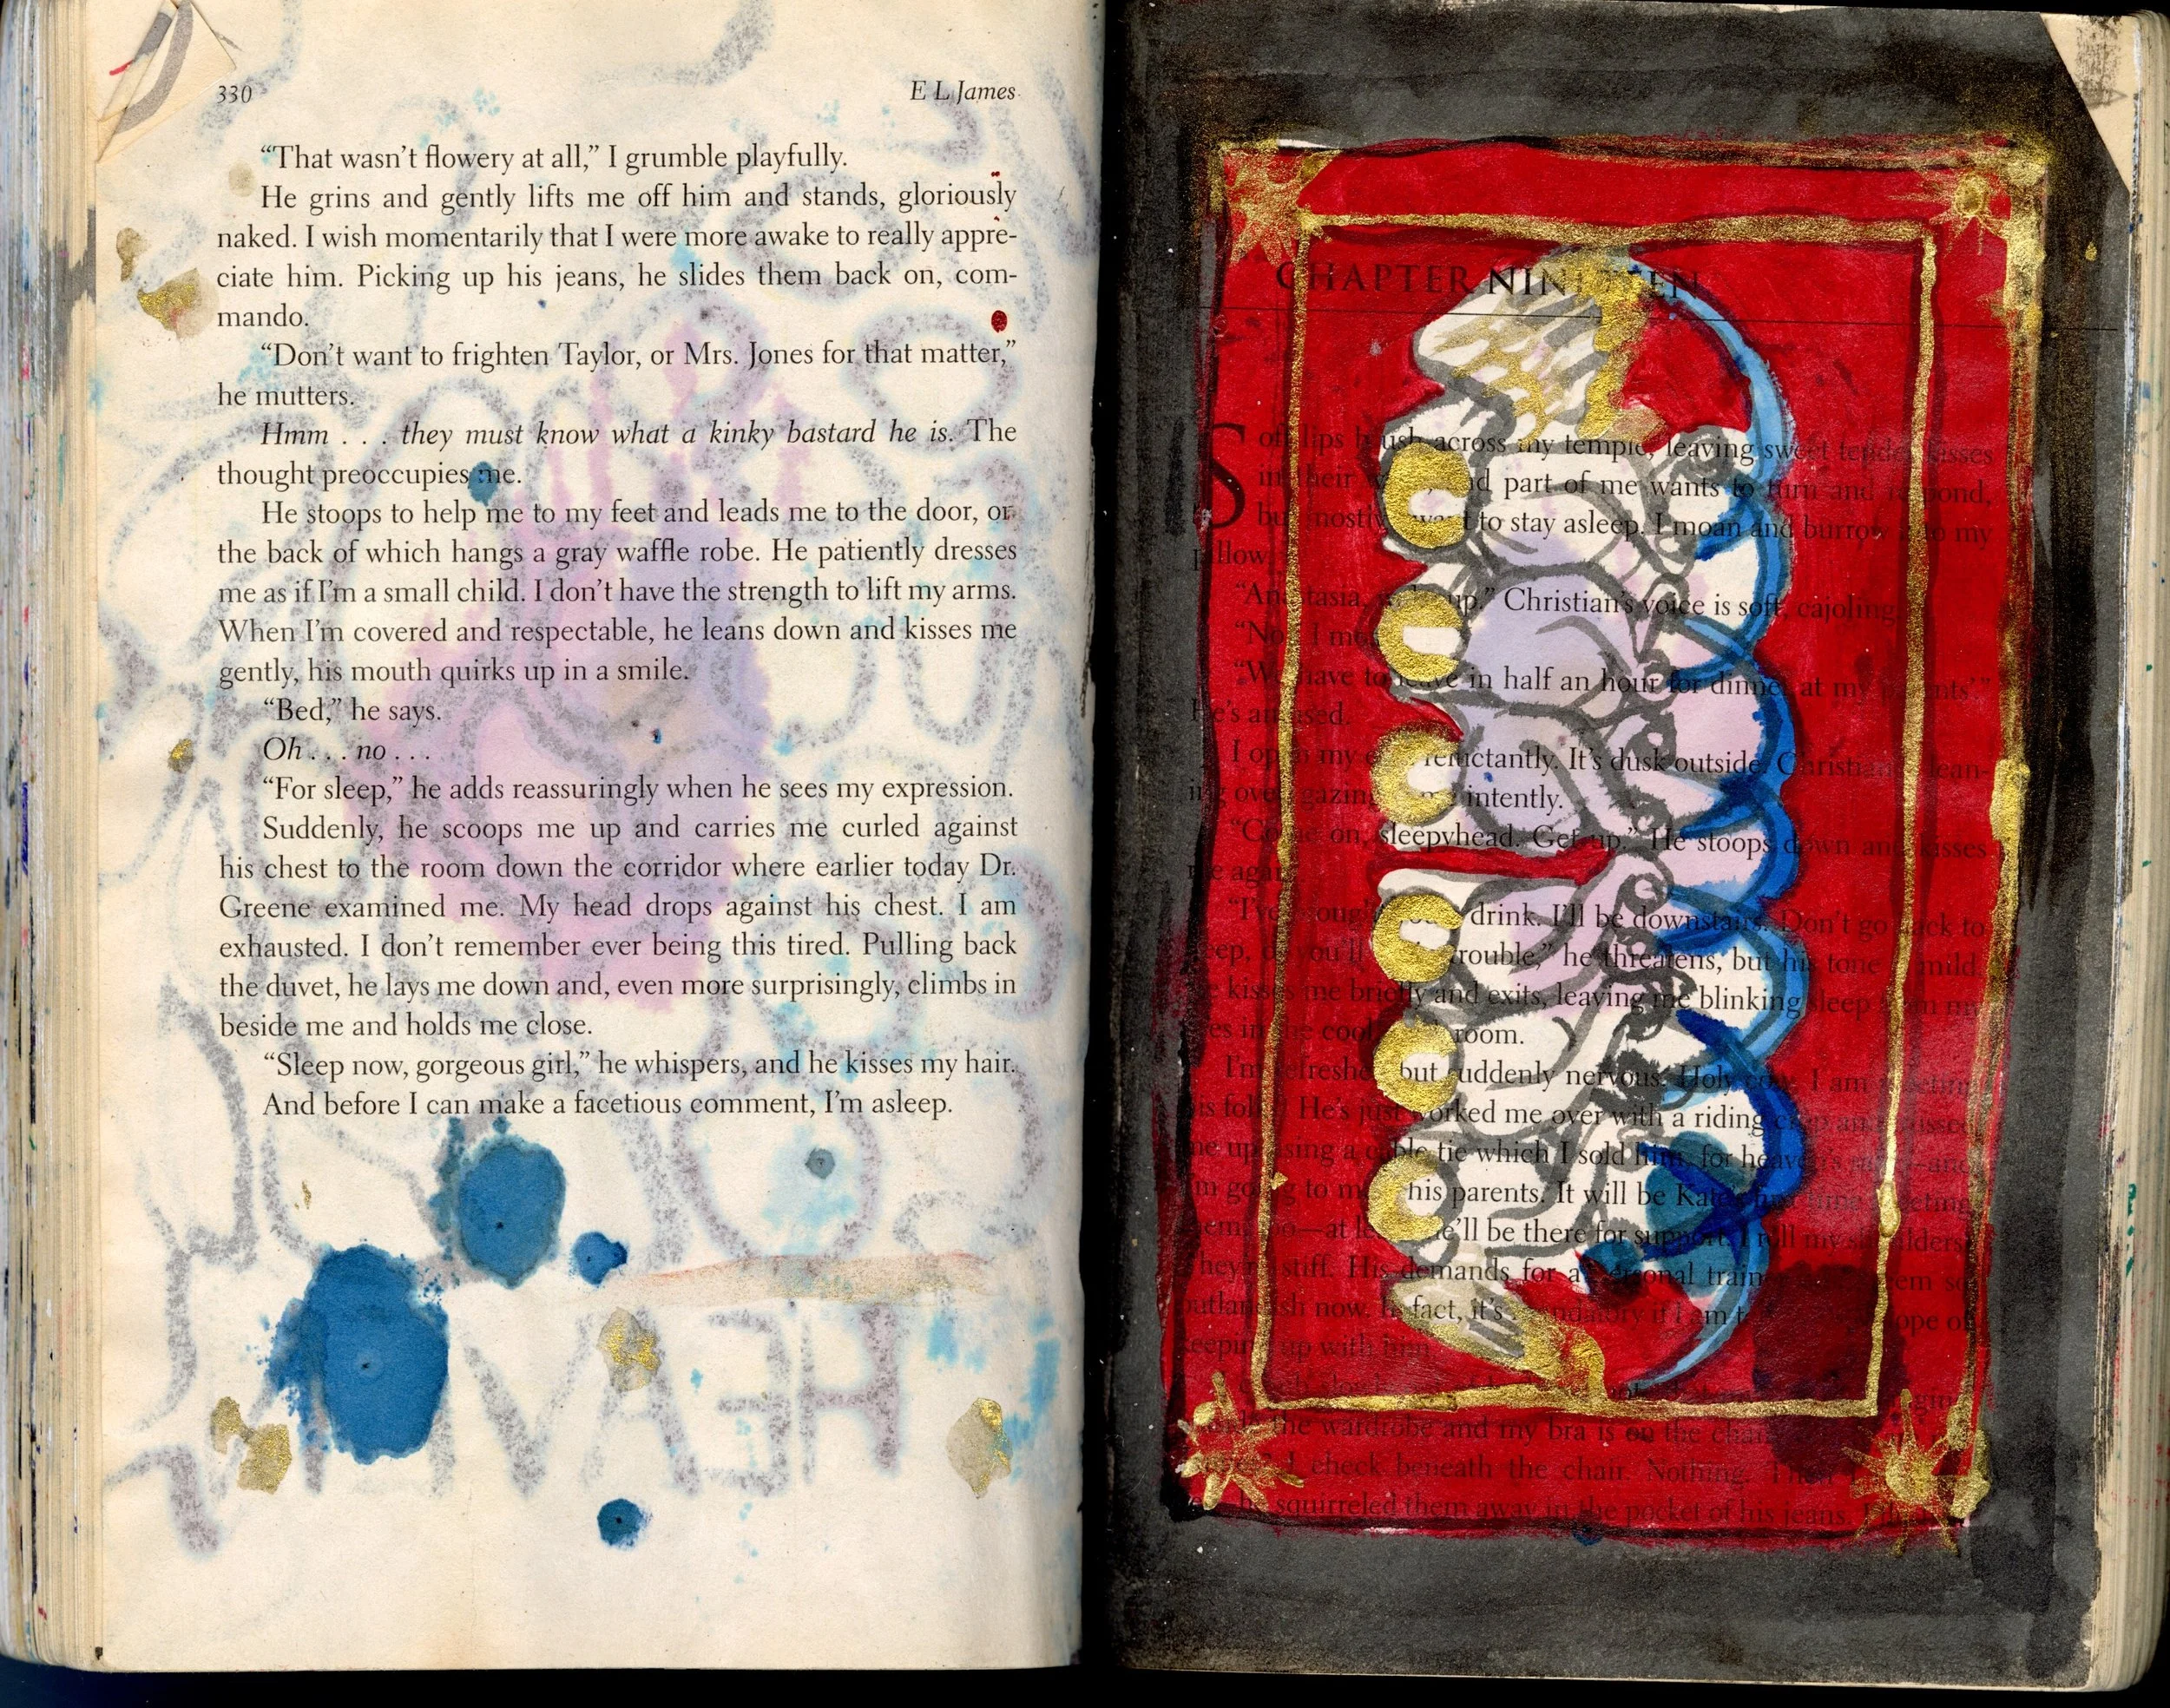 330
E L James
“That wasn’t flowery at all,” I grumble playfully.
He grins and gently lifts me off him and stands, gloriously
naked. I wish momentarily that I were more awake to really appre-
ciate him. Picking up his jeans, he slides them back on, com-
mando.
“Don’t want to frighten Taylor, or Mrs. Jones for that matter,”
he mutters.
Hmm . . . they must know what a kinky bastard he is. The
thought preoccupies me.
He stoops to help me to my feet and leads me to the door, on
the back of which hangs a gray waffle robe. He patiently dresses
me as if I’m a small child. I don’t have the strength to lift my arms.
When I’m covered and respectable, he leans down and kisses me
gently, his mouth quirks up in a smile.
“Bed,” he says.
Oh . . . no . . .
“For sleep,” he adds reassuringly when he sees my expression.
Suddenly, he scoops me up and carries me curled against
his chest to the room down the corridor where earlier today Dr.
Greene examined me. My head drops against his chest. I am
exhausted. I don’t remember ever being this tired. Pulling back
the duvet, he lays me down and, even more surprisingly, climbs in
beside me and holds me close.
“Sleep now, gorgeous girl,” he whispers, and he kisses my hair.
And before I can make a facetious comment, I’m asleep.
HEAV
CHAPTER NINETEEN
Soft lips brush across my temple, leaving sweet tender kisses
in their and part of me wants to turn and respond,
but mostly want to stay asleep. I moan and burrow into my
pillow
“Anastasia, up.” Christian’s voice is soft, cajoling
“No I
“We have to leave in half an hour for dinner at my parents’.”
He’s amused.
I open my reluctantly. It’s dusk outside Christian lean-
ing over gazing intently.
“Come on, sleepyhead. Get up.” He stoops down and kisses
me again
“I’ve drink. I’ll be downstairs. Don’t go back to
sleep, or you’ll trouble,” he threatens, but his tone mild.
kisses me briefly and exits, leaving me blinking sleep from my
eyes in the cool room.
I’m refreshed but suddenly nervous. Holy cow, I am meeting
his folks! He’s just worked me over with a riding crop and
me up using a cable tie which I sold him, for heaven’s —and
I’m going to his parents. It will be Kate’s first time meeting
them too—at she’ll be there for support. I roll my shoulders
They’re stiff. His demands for a personal trainer seem so
outlandish now. In fact, it’s mandatory if I am to hope of
keeping up with him
the wardrobe and my bra is on the chair
I check beneath the chair. Nothing. Then
he squirreled them away in the pocket of his jeans.